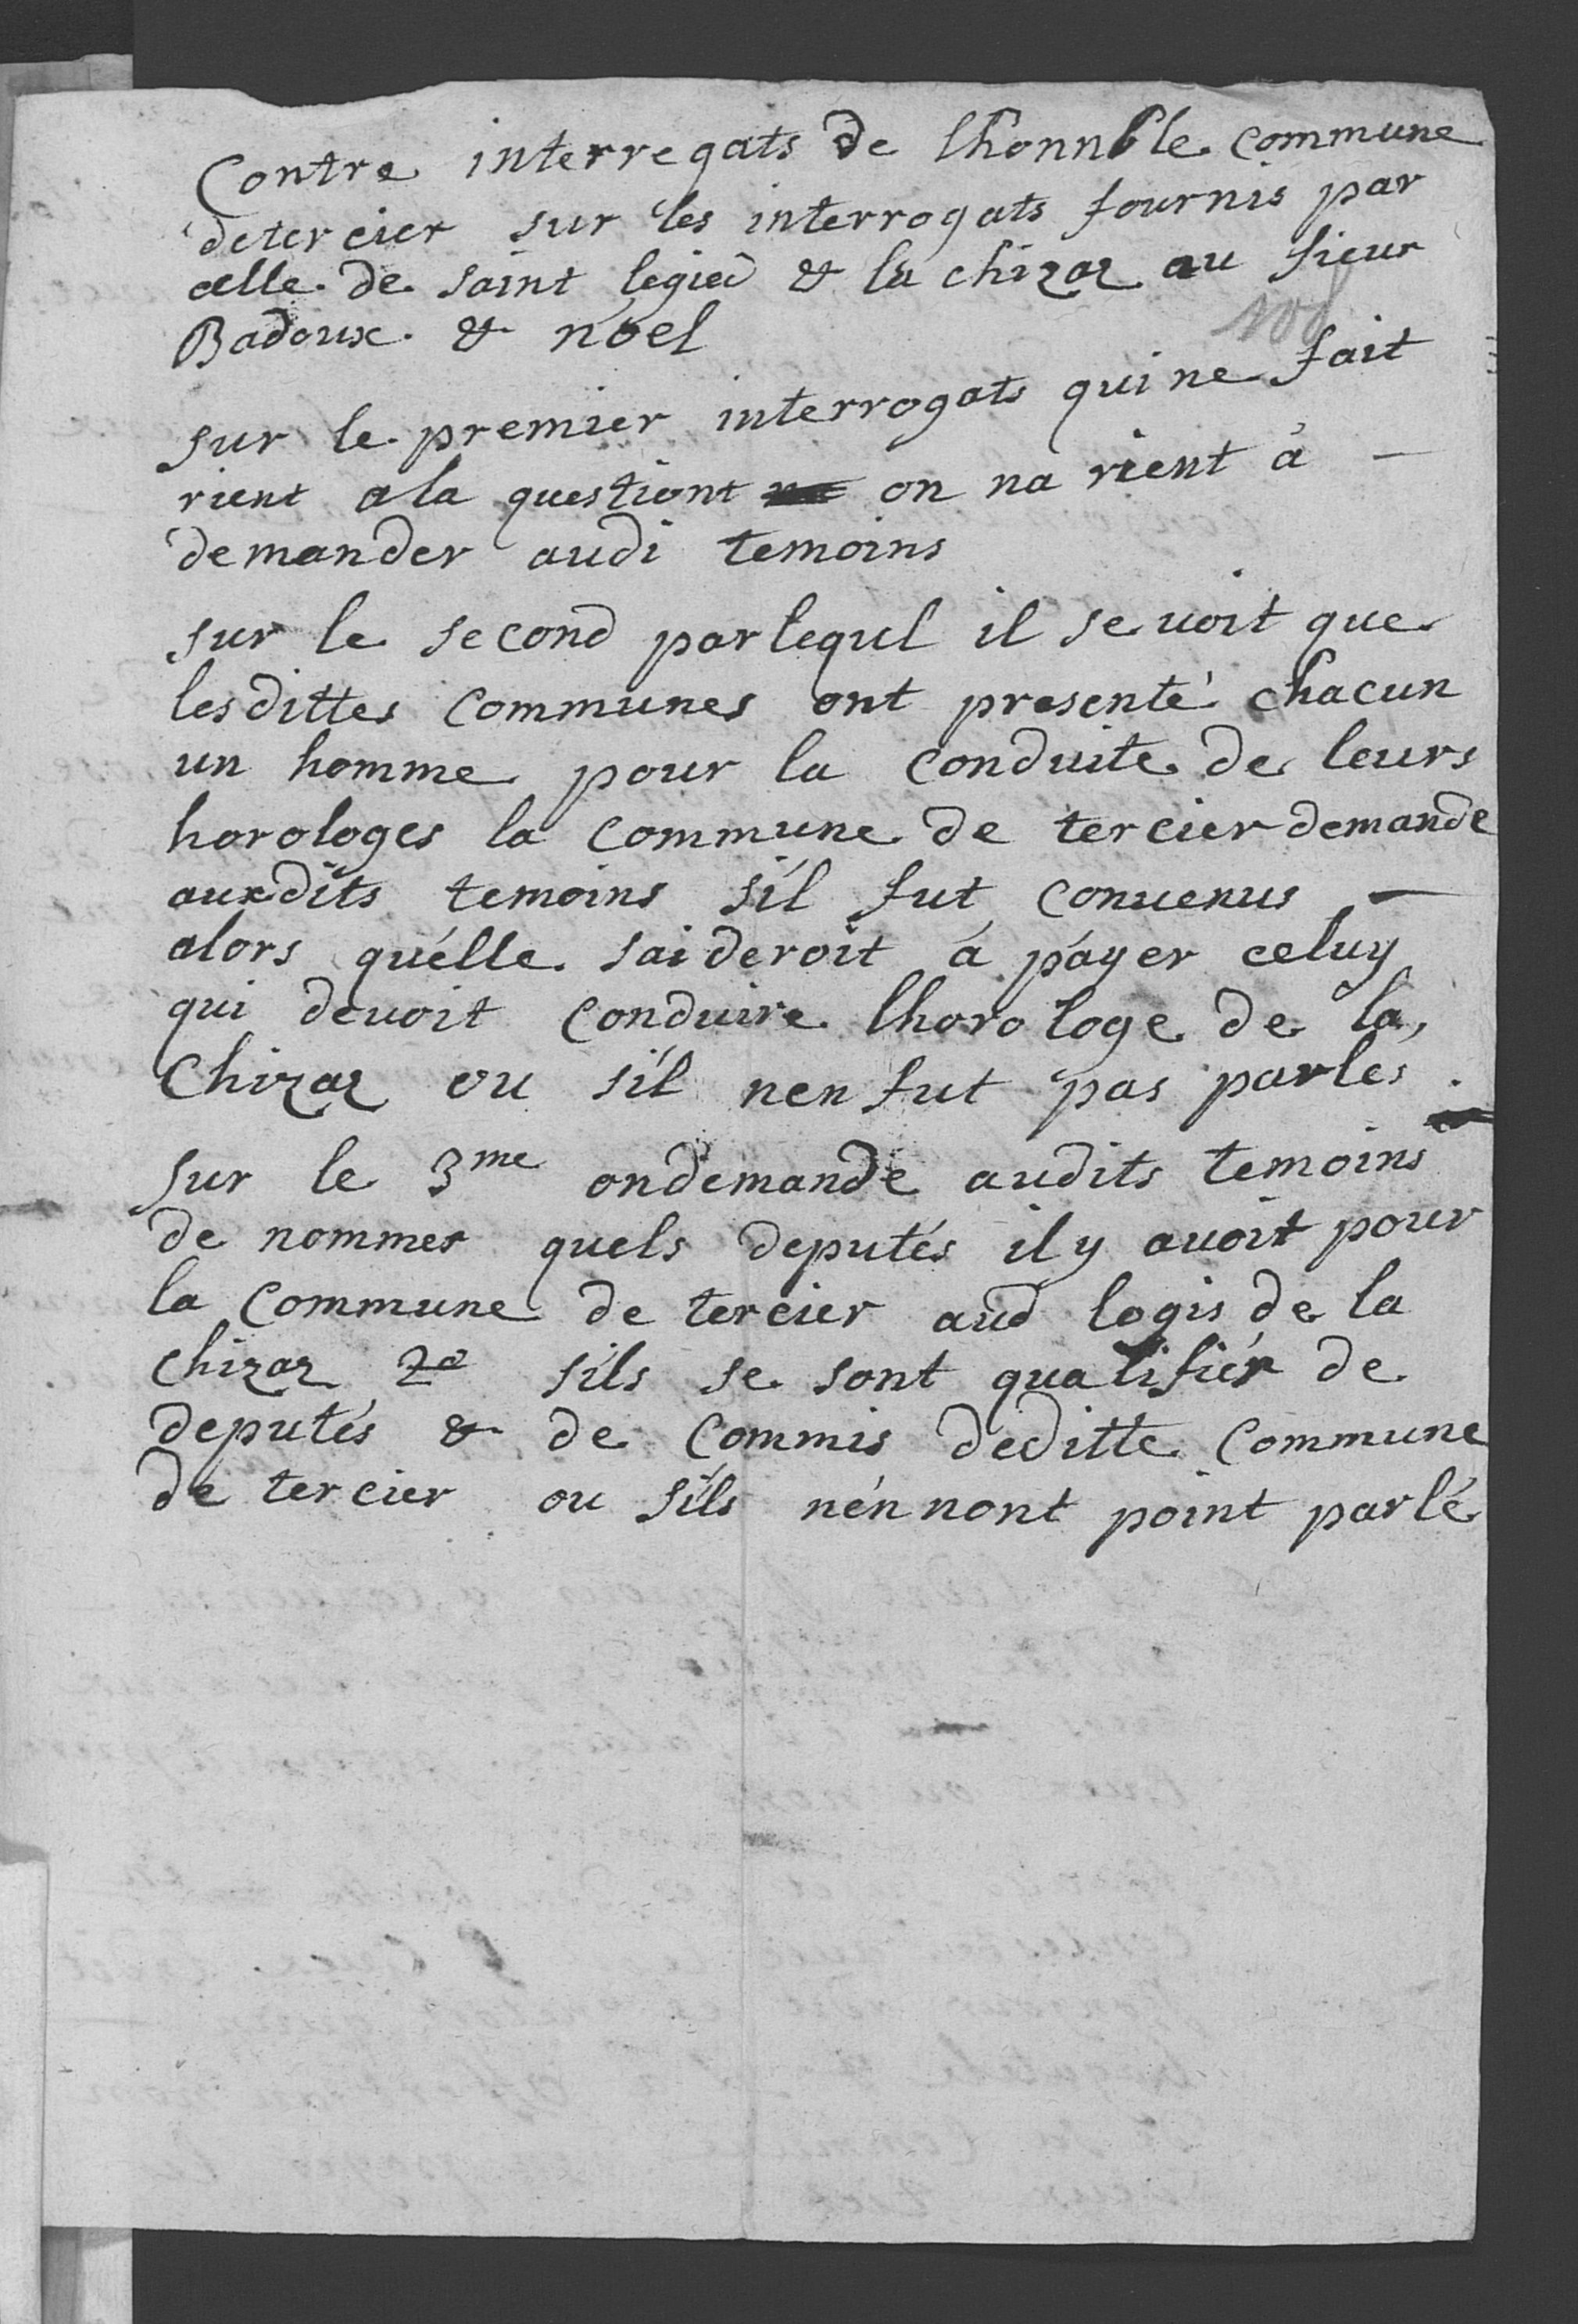 Contre interregats de lhonnble commune
detercier sur les interrogats fournis par
celle de saint legied & la chizaz au sieur
Badoux & noel
108
sur le premier interrogats qui ne fait
rient a la questiont on na rient à —
demander audi temoins
sur le second parlequl il se uoit que
lesdittes communes ont presenté chacun
un homme pour la conduite de leurs
horologes la commune de tercier demande
auxdits temoins s'il fut conuenus —
alors qu'elle saideroit à payer celuy
qui deuoit conduire lhorologe de la,
Chizaz ou s'il nen fut pas parles .
sur le 3me ondemande audits temoins
de nommer quels deputés il y auoit pour
la commune de tercier aud logis de la
chizaz 2o s'ils se sont qualifiér de
deputés & de commis deditte commune
de tercier ou s'ils n'en nont point parlé